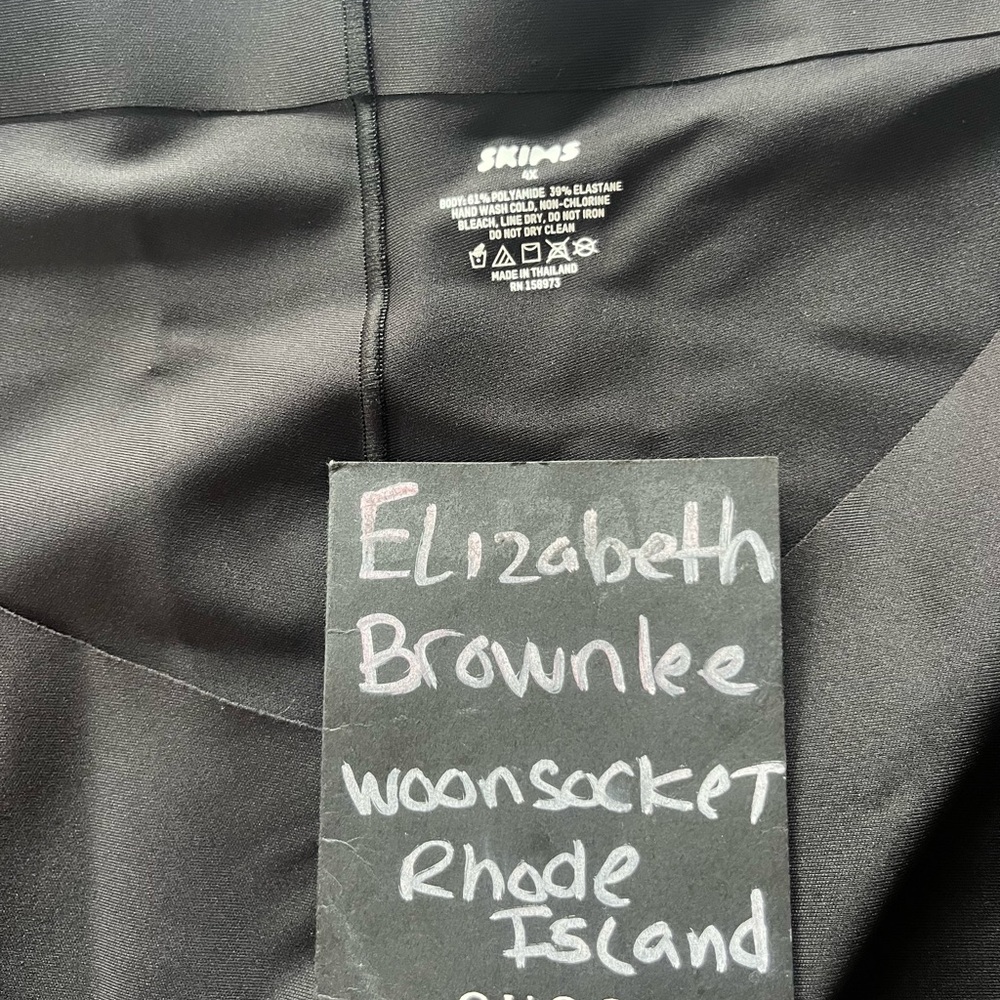 SKIMS
4X
BODY: 61% POLYAMIDE 39% ELASTANE
HAND WASH COLD, NON-CHLORINE
BLEACH, LINE DRY, DO NOT IRON
DO NOT DRY CLEAN
MADE IN THAILAND
RN 158973
ELizabeth
Brownlee
woonsockeT
Rhode
Island